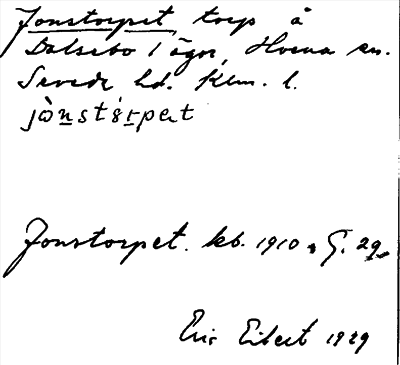 Jonstorpet, torp å
Dalsebo 1 ägor, Hvena sn.
Sevede hd. Klm. l.
jònstórpet
Jonstorpet. kb. 1910, G. 29.
Eric Eibert 1929